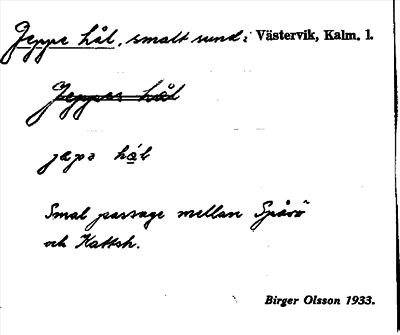 Jeppe hål, smalt sund i Västervik, Kalm. l.
Jeppes hål
jæpə hål
Smal passage mellan Spårö
och Kattsh.
Birger Olsson 1933.